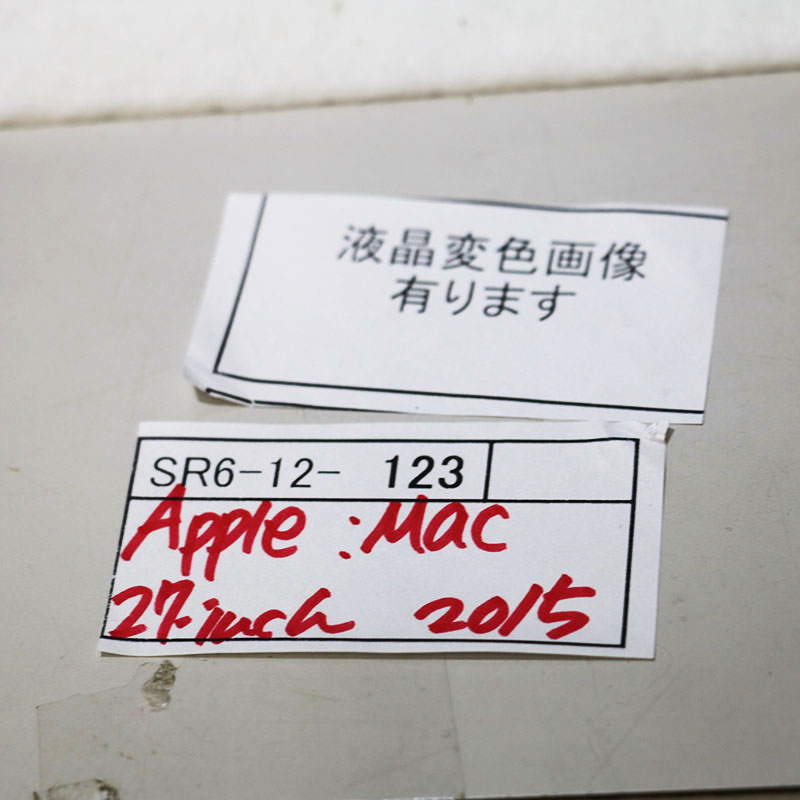 液晶変色画像
有ります
SR6-12- 123
Apple :Mac
27-inch 2015